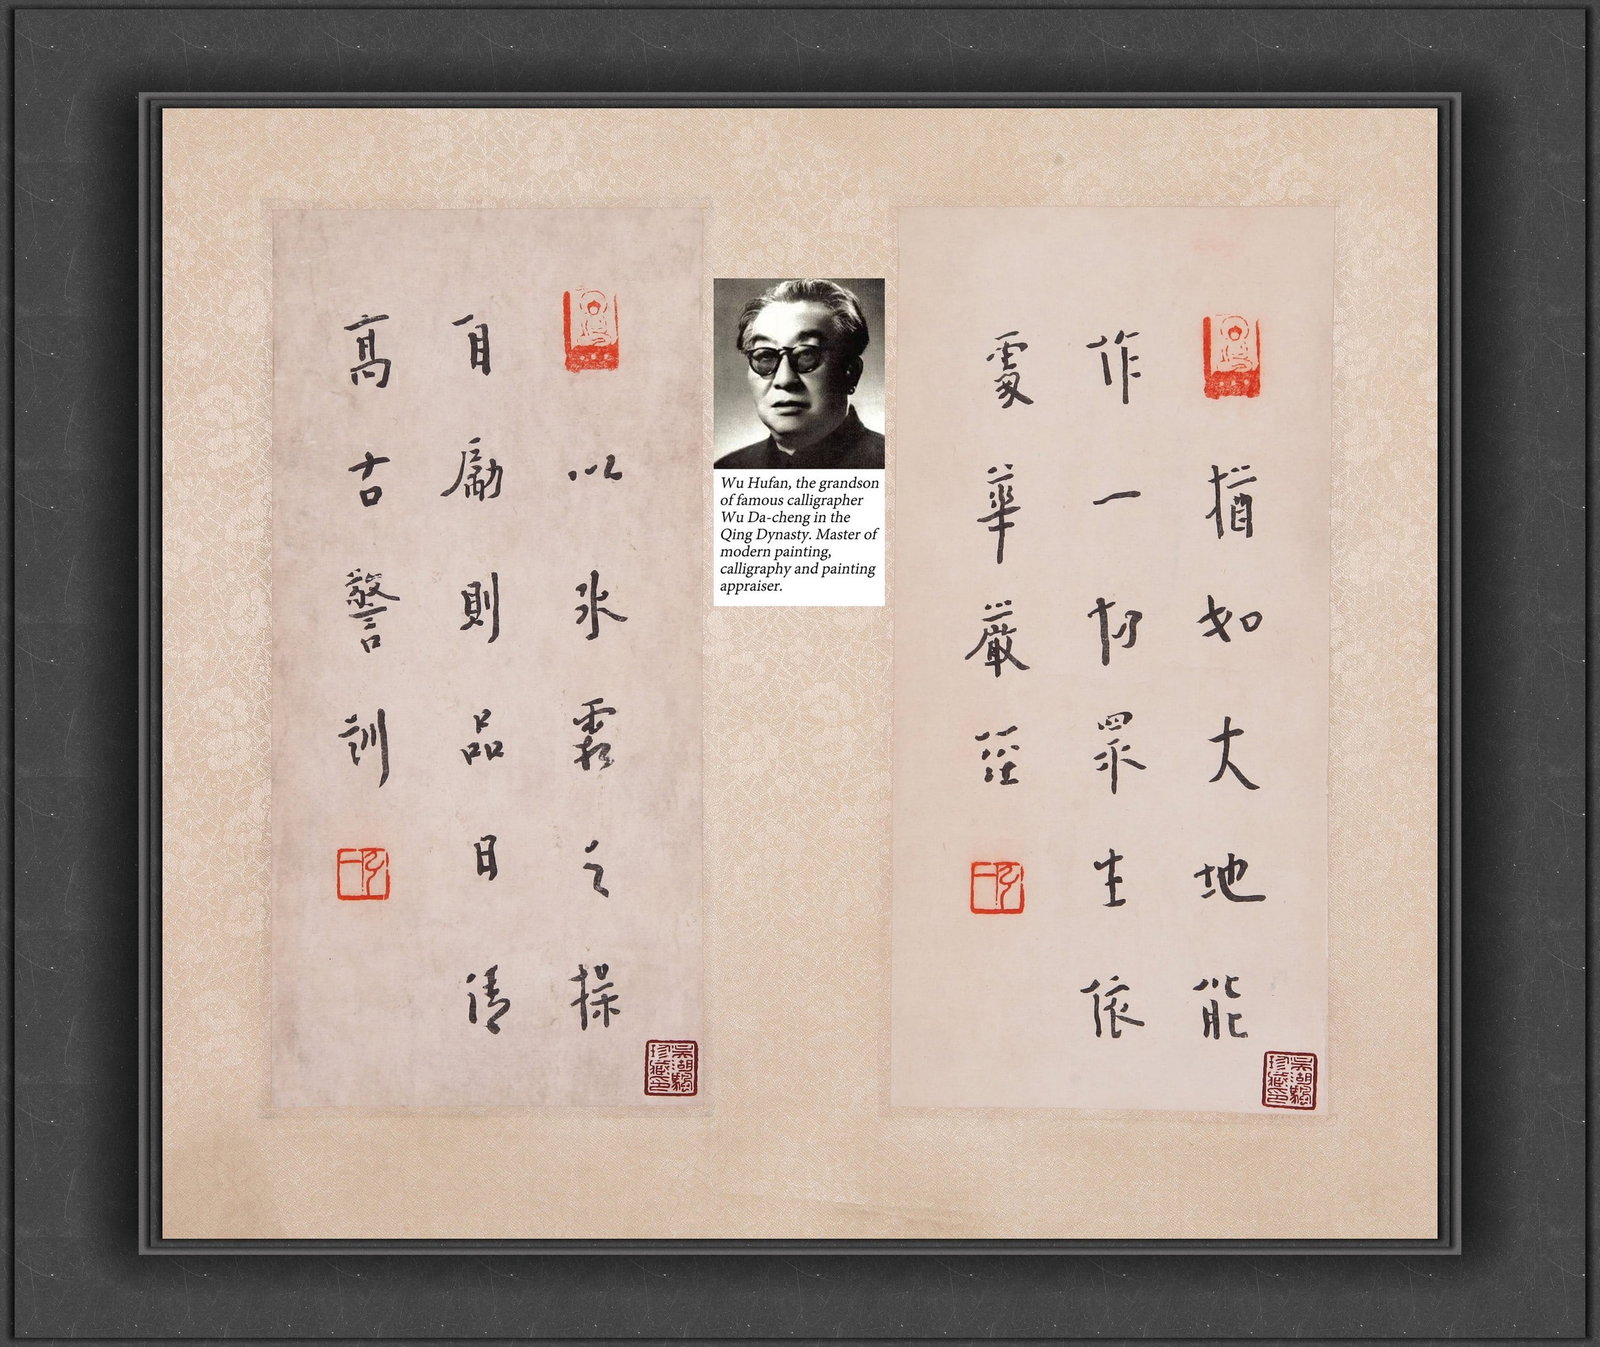 猶如大地能
作一切眾生依
處華嚴經
吳湖颿
珍藏印
Wu Hufan, the grandson
of famous calligrapher
Wu Da-cheng in the
Qing Dynasty. Master of
modern painting,
calligraphy and painting
appraiser.
以氷霜之操
自勵則品日清
高古警訓
吳湖颿
珍藏印